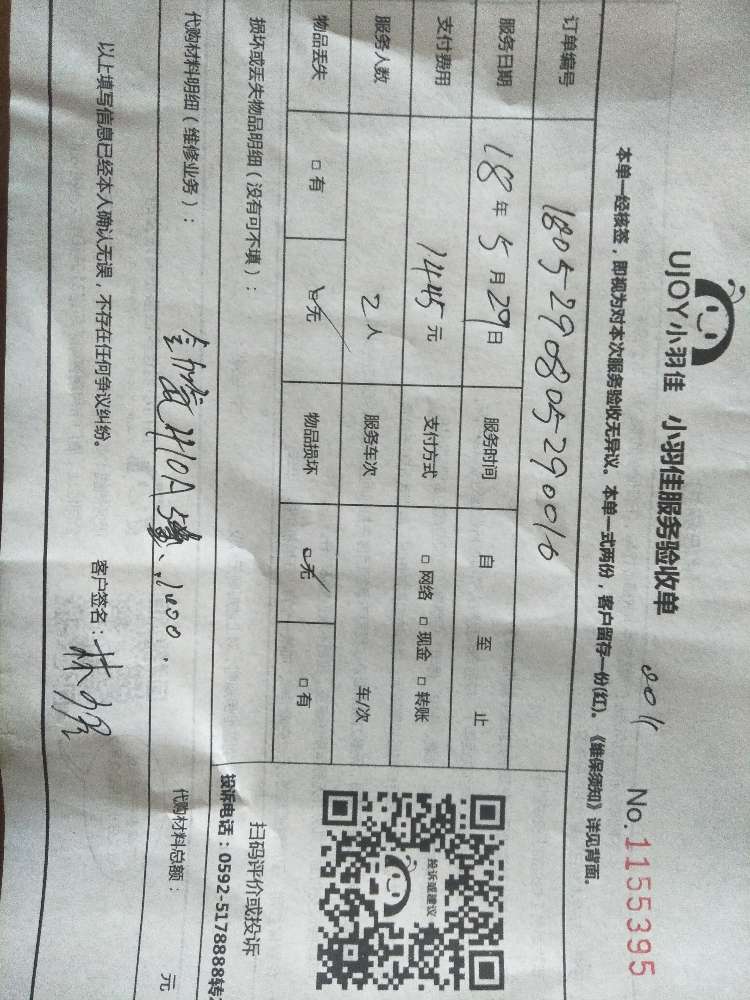 UJOY小羽佳 小羽佳服务验收单 8011 No.1155395
本单一经核签，即视为对本次服务验收无异议。本单一式两份，客户留存一份(红)。《维保须知》详见背面。
订单编号 1805290805290016
服务日期 18年5月29日 服务时间 自 至 止
支付费用 1445元 支付方式 □ 网络 □ 现金 □ 转账
服务人数 2人 服务车次 车/次
物品丢失 □ 有 □ 无 物品损坏 □ 无 □ 有
损坏或丢失物品明细（没有可不填）：
扫码评价或投诉
投诉或建议
投诉电话：0592-5178888转
代购材料明细（维修业务）： 代购材料总额： 元
R410A
以上填写信息已经本人确认无误，不存在任何争议纠纷。 客户签名：林